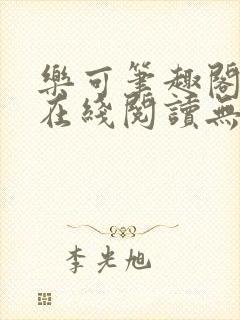 樂可筆趣閣
在綫閱讀無
李光旭